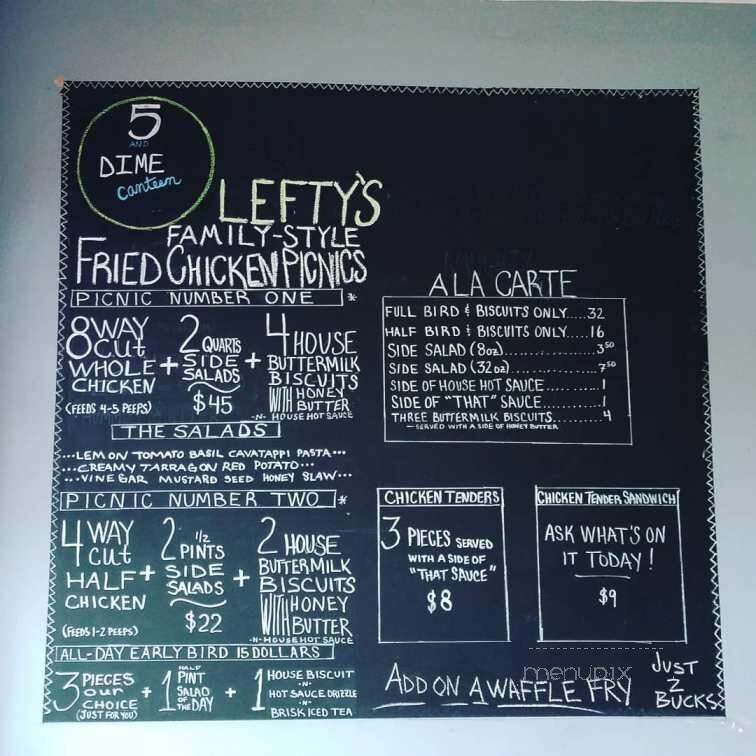 5
AND
DIME
canteen
LEFTY'S
FAMILY-STYLE
FRIED CHICKEN PICNICS
PICNIC NUMBER ONE *
8 WAY CUT WHOLE CHICKEN
(FEEDS 4-5 PEEPS)
+
2 QUARTS SIDE SALADS
$45
+
4 HOUSE BUTTERMILK BISCUITS
WITH HONEY BUTTER
-N- HOUSE HOT SAUCE
THE SALADS
...LEMON TOMATO BASIL CAVATAPPI PASTA...
...CREAMY TARRAGON RED POTATO...
...VINEGAR MUSTARD SEED HONEY SLAW...
PICNIC NUMBER TWO *
4 WAY CUT HALF CHICKEN
(FEEDS 1-2 PEEPS)
+
2 1/2 PINTS SIDE SALADS
$22
+
2 HOUSE BUTTERMILK BISCUITS
WITH HONEY BUTTER
-N- HOUSE HOT SAUCE
ALL-DAY EARLY BIRD 15 DOLLARS
3 PIECES OUR CHOICE
(JUST FOR YOU)
+
1 HALF PINT SALAD OF THE DAY
+
1 HOUSE BISCUIT
-N-
HOT SAUCE DRIZZLE
-N-
BRISK ICED TEA
A LA CARTE
FULL BIRD & BISCUITS ONLY....32
HALF BIRD & BISCUITS ONLY....16
SIDE SALAD (8oz)...............3 50
SIDE SALAD (32oz)..............7 50
SIDE OF HOUSE HOT SAUCE.........1
SIDE OF "THAT" SAUCE..........1
THREE BUTTERMILK BISCUITS.......4
—SERVED WITH A SIDE OF HONEY BUTTER
CHICKEN TENDERS
3 PIECES SERVED
WITH A SIDE OF
"THAT SAUCE"
$8
CHICKEN TENDER SANDWICH
ASK WHAT'S ON
IT TODAY!
$9
menupix
ADD ON A WAFFLE FRY JUST 2 BUCKS